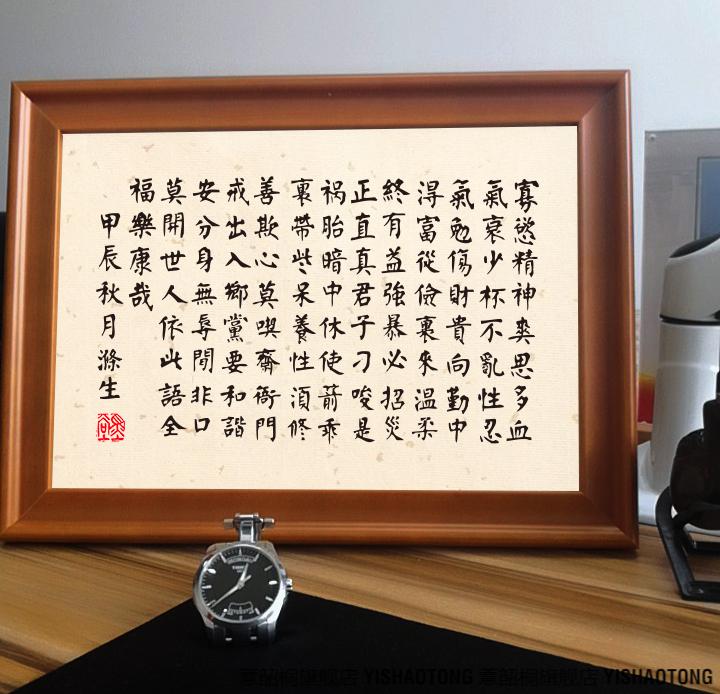 寡慾精神爽思多血
氣衰少杯不亂性忍
氣勉傷財貴向勤中
淂富從儉裏來温柔
終有益強暴必招災
正直真君子刁唆是
祸胎暗中休使箭乖
裏帶些呆養性湏修
善欺心莫喫齋衙門
戒出入鄉黨要和諧
安分身無辱閒非口
莫開世人依此語全
福樂康哉
甲辰秋月滌生
YISHAOTONG
YISHAOTONG